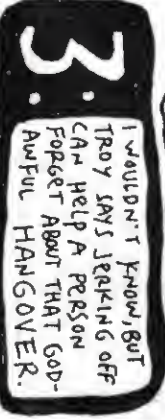 3.
I WOULDN'T KNOW, BUT
TROY SAYS JERKING OFF
CAN HELP A PERSON
FORGET ABOUT THAT GOD-
AWFUL HANGOVER.